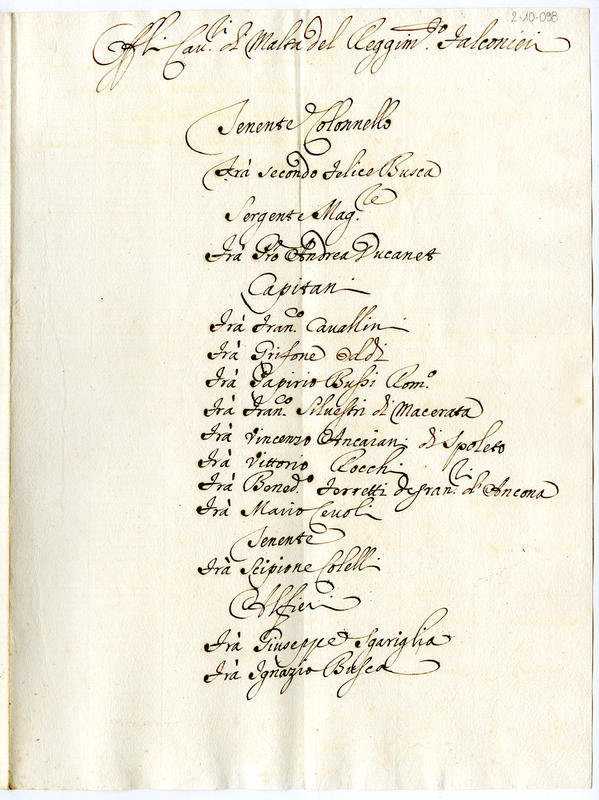 2-10-098
Off.li Cav.ri di Malta del Reggim.to Falconieri
Tenente Colonnello
Frà secondo Felice Busca
Sergente Mag.re
Frà Pro Andrea Ducanet
Capitani
Frà Fran.co Cavallini
Frà Grifone Eldi
Frà Papirio Bussi Rom.o
Frà Fran.co Silvestri di Macerata
Frà Vincenzo Ancaiani di Spoleto
Frà Vittorio Rocchi
Frà Bened.o Ferretti de Fran.li d'Ancona
Frà Mario Cevoli
Tenente
Frà Scipione Colelli
Alfieri
Frà Giuseppe Sgariglia
Frà Ignazio Busca